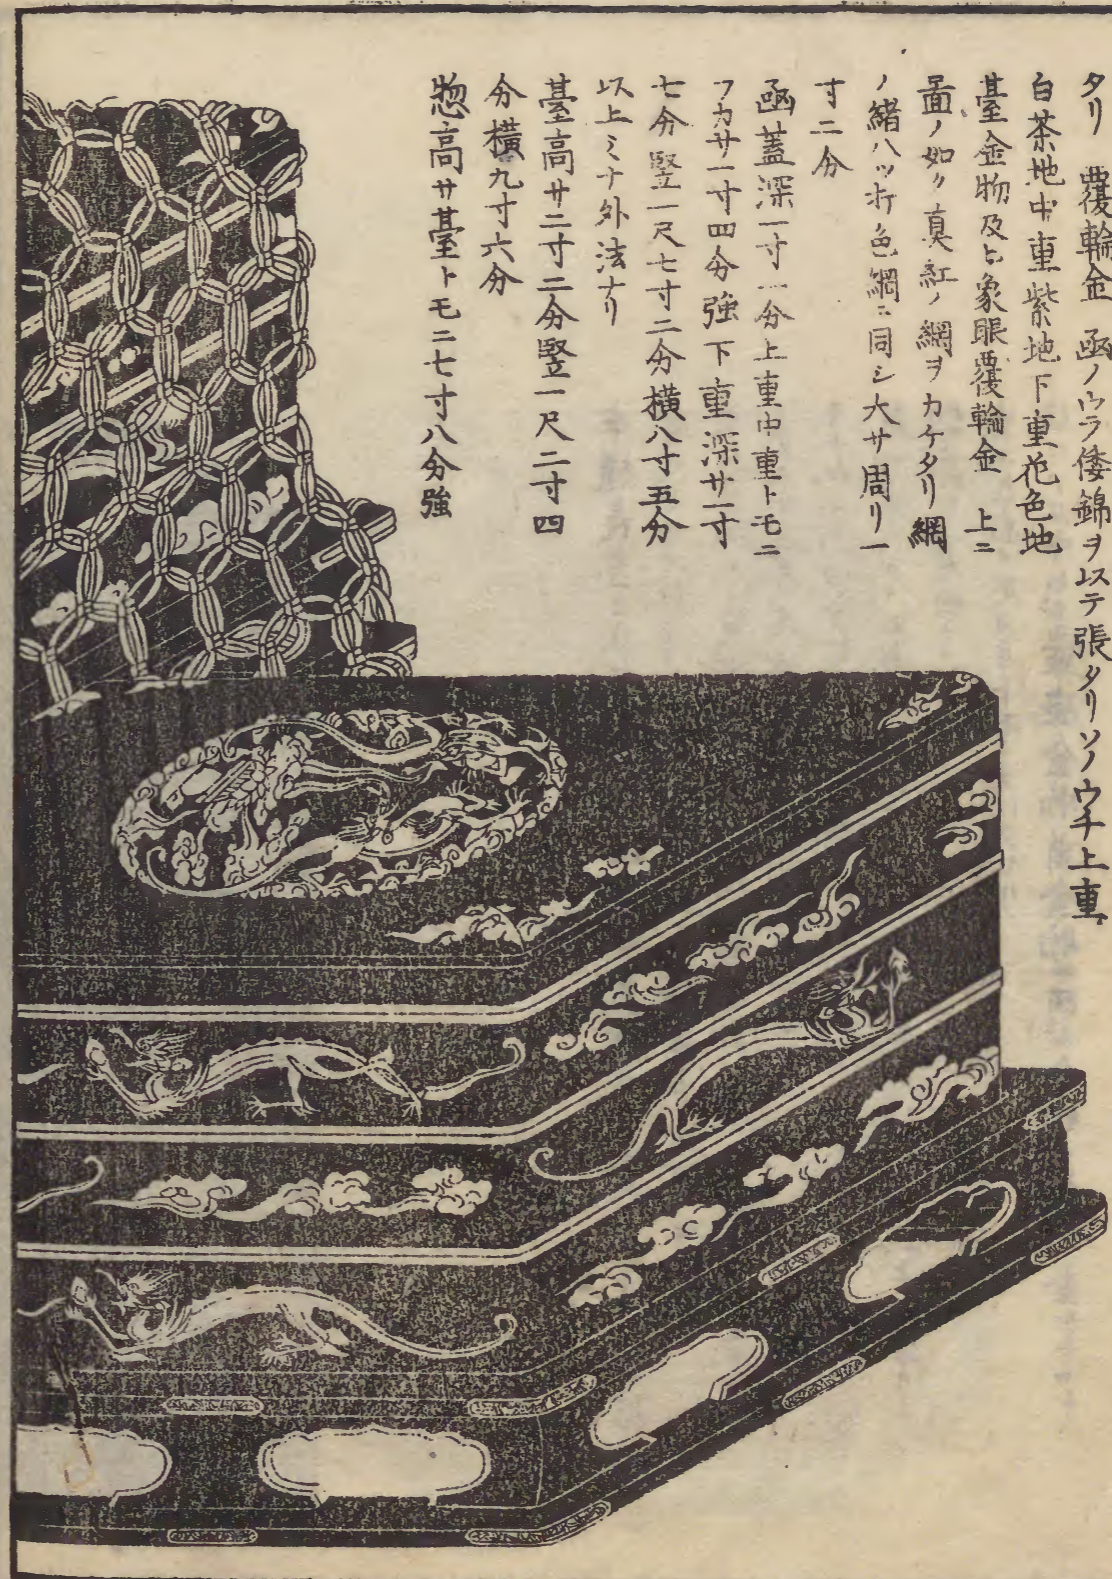 タリ 覆輪金 函ノウラ倭錦ヲ以テ張タリソノウチ上重
白茶地中重紫地下重花色地
臺金物及ヒ象眼覆輪金 上ニ
畵ノ如ク真紅ノ網ヲカケタリ網
ノ緒八ツ折色網ニ同シ大サ周リ一
寸二分
函蓋深一寸一分上重中重トモニ
フカサ一寸四分強下重深サ二寸
七分竪一尺七寸二分横八寸五分
以上ミナ外法ナリ
臺高サ二寸二分竪一尺二寸四
分横九寸六分
惣高サ臺トモニ七寸八分強